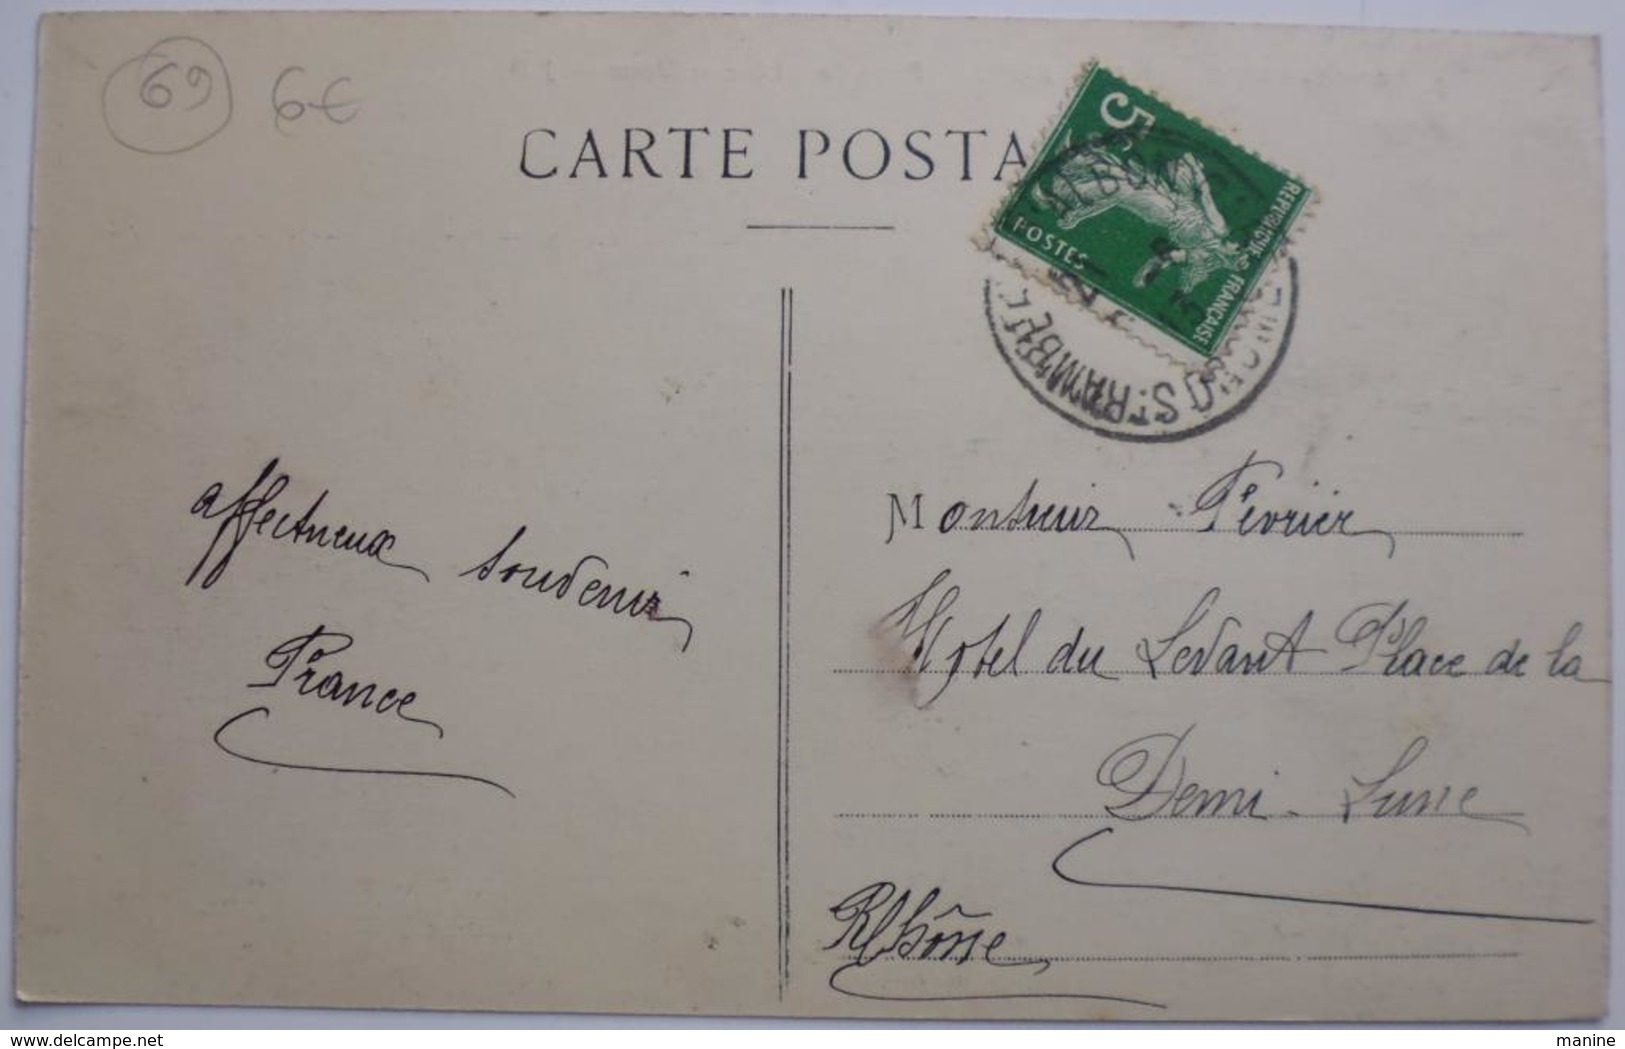 69 6€
CARTE POSTA
5c
POSTES
REPUBLIQUE FRANÇAISE
ST RAMBE
affectueux souvenir
France
Monsieur Février
Hotel du Levant Place de la
Demi-Lune
Rhône
delcampe.net
manine